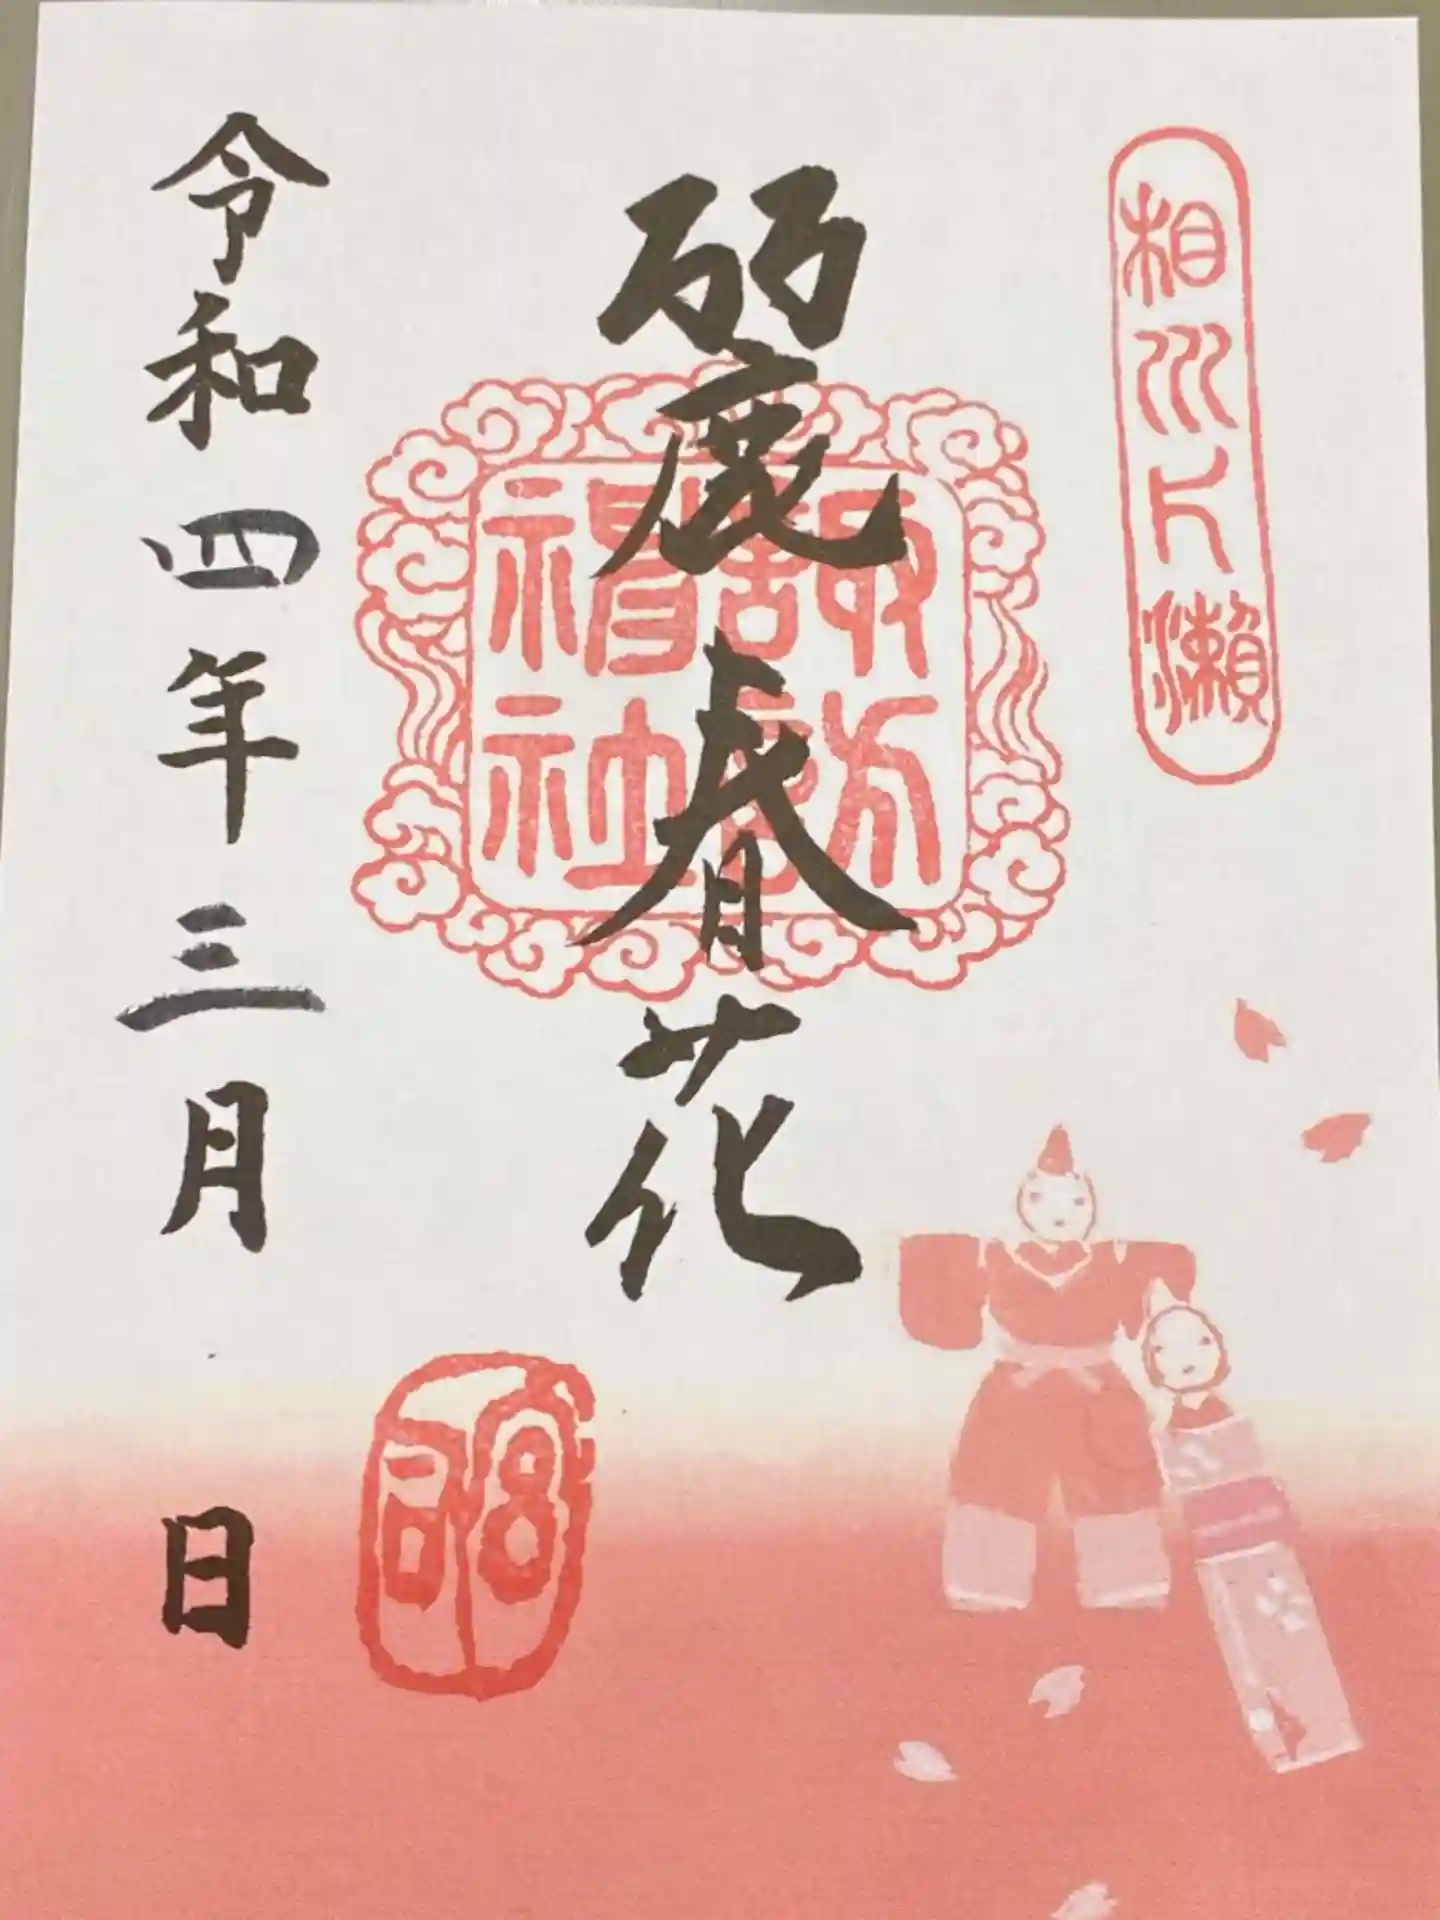 相州片瀬
麗春花
諏訪
神社
令和四年三月 日
宮司